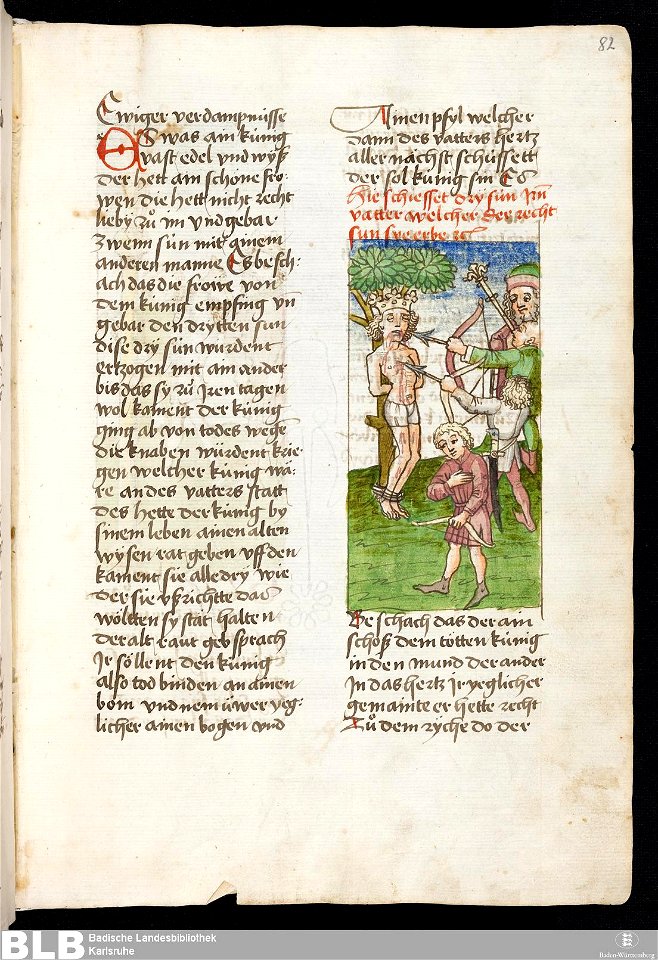 82
Ewiger verdampnisse
Es was ain künig
vast edel vnd wyß
der hett ain schöne fro-
wen die hett nicht recht
lieby zů im vnd gebar
zwenn sün mit ainem
anderen manne Es besch:
ach das die frowe von
dem künig empfing vn̄
gebar den drytten sun
dise dry sün wurdent
erzogen mit am ander
bis das sy zů Iren tagen
wol kament der künig
ging ab von todes wege
die knaben würdent krie-
gen welcher künig wä:
re an des vatters statt
des hette der künig by
sinem leben ainen alten
wysen rat geben vff den
kament sie alle dry wie
der sie vßrichtte das
wöltten sy stät halten
der alt raut geb sprach
Ir söllent den künig
also tod binden an ainen
bom vnd nem üwer yeg-
licher ainen bogen vnd
Ainen pfyl welcher
dann des vatters hertz
aller nächst schüssett
der sol künig sin Es
hie schiesset dry sün Irn
vatter welcher der recht
sun
Be schach das der ain
schöß dem totten künig
in den mund der ander
In das hertz Ir yeglicher
gemainte er hette recht
Zů dem ryche do der
BLB
Badische Landesbibliothek
Karlsruhe
Baden-Württemberg